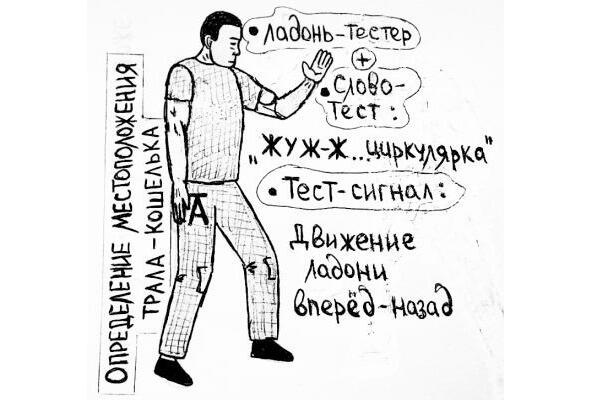 ОПРЕДЕЛЕНИЕ МЕСТОПОЛОЖЕНИЯ
ТРАЛА-КОШЕЛЬКА
• ЛАДОНЬ-ТЕСТЕР
+
• СЛОВО-
ТЕСТ:
„ЖУЖ-Ж...ЦИРКУЛЯРКА"
• ТЕСТ-СИГНАЛ:
ДВИЖЕНИЕ
ЛАДОНИ
ВПЕРЁД-НАЗАД
А